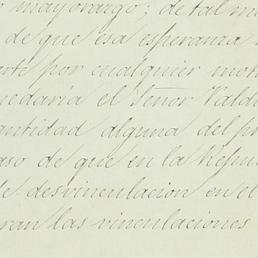 mayorazgo; de tal m
de que esa esperanza
por cualquier mot
quedaria el Señor Vald
cantidad alguna del pr
caso de que en la Repu
de desvinculacion en el
ran las vinculaciones